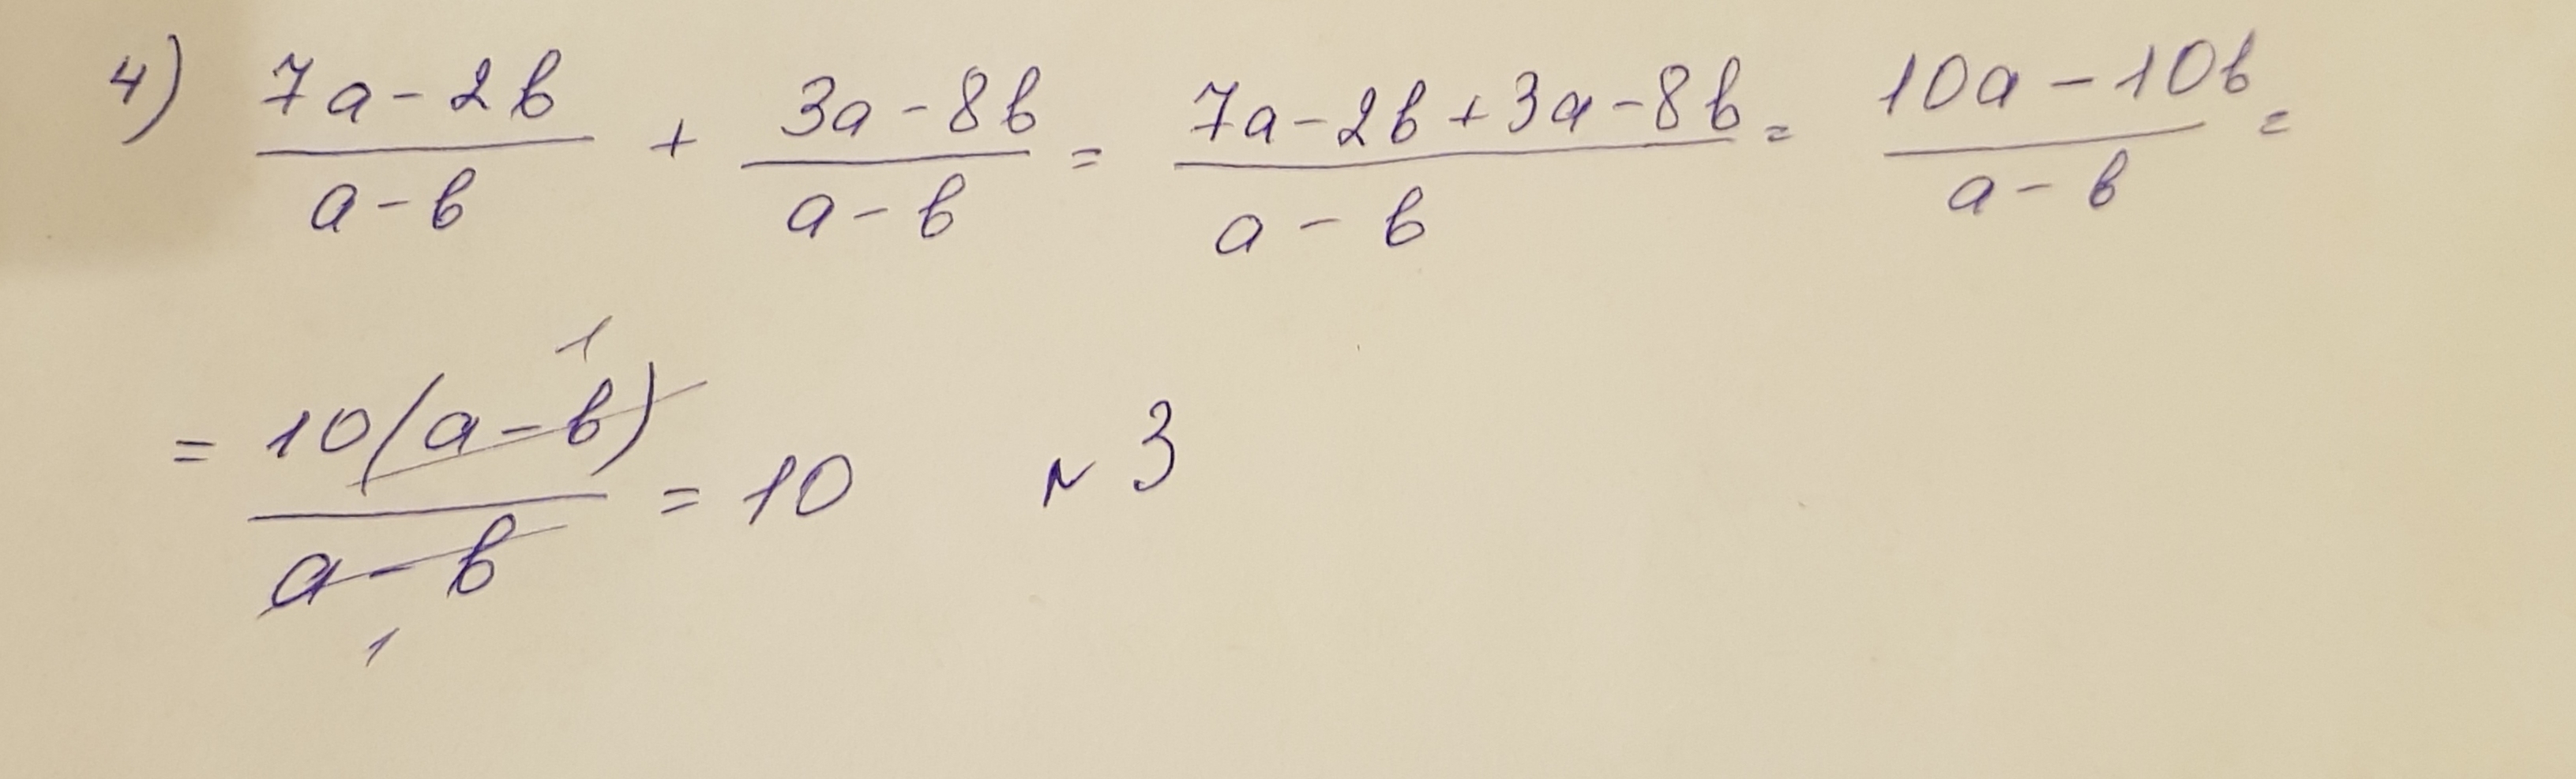 4) (7a-2b)/(a-b) + (3a-8b)/(a-b) = (7a-2b+3a-8b)/(a-b) = (10a-10b)/(a-b) =
= 10(a-b)¹/(a-b)₁ = 10 № 3